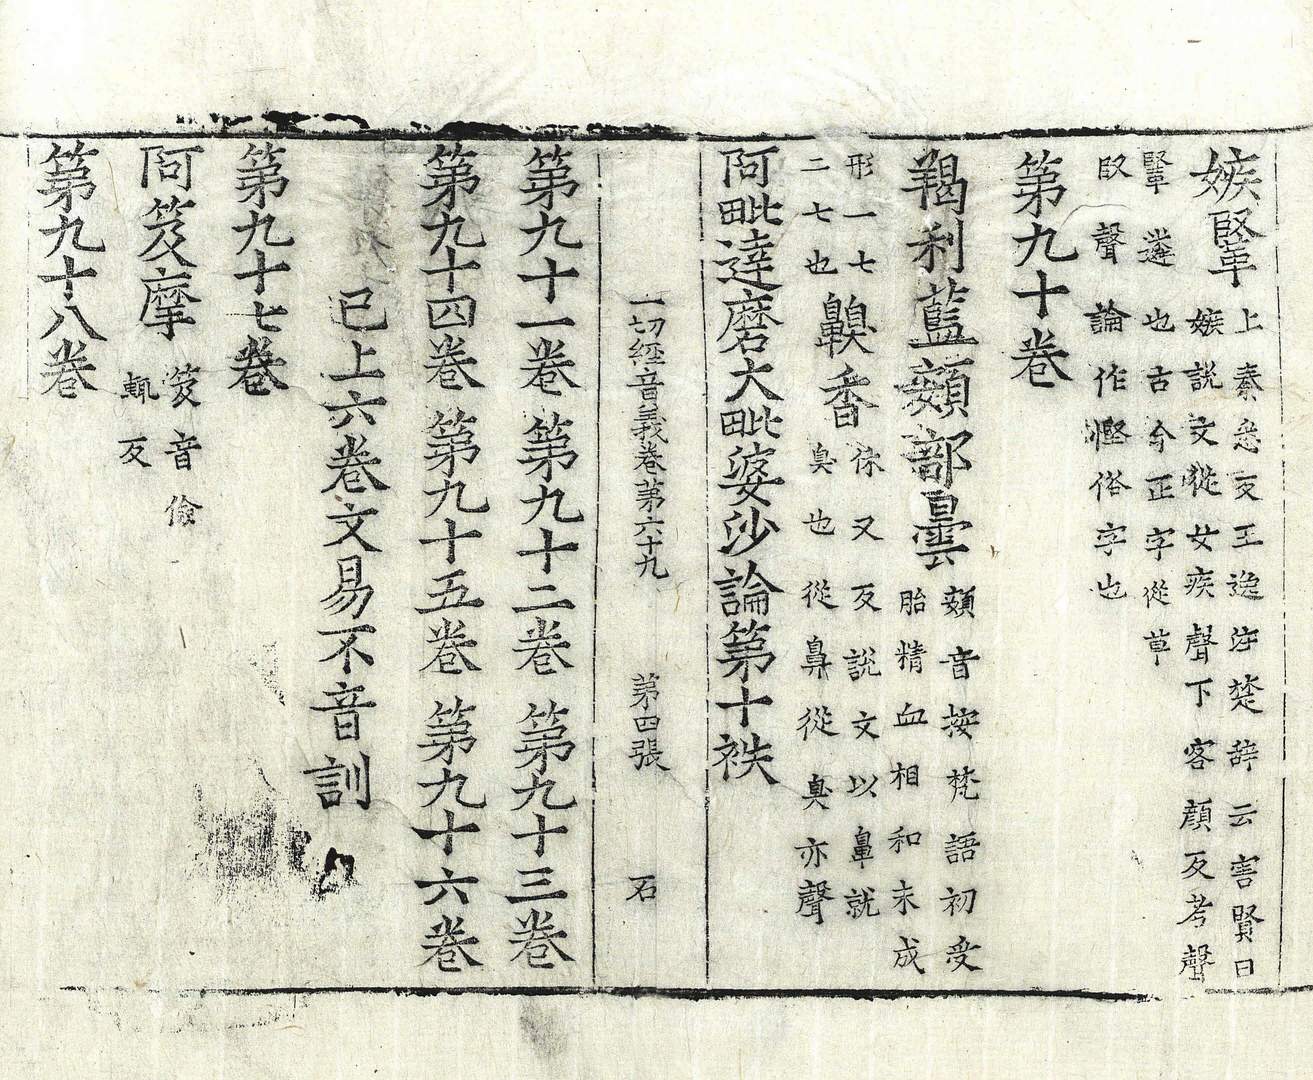 嫉䥍上秦悉反王逸注楚辞云害賢曰
嫉說文從女疾聲下客顔反考聲
䥍遴也古今正字從革
臤聲論作慳俗字也
第九十卷
羯利藍頞部曇頞音按梵語初受
胎精血相和未成
形一七
二七也齅香休又反說文以鼻就
臭也從鼻從臭亦聲
阿毗達磨大毗婆沙論第十袟
一切經音義卷第六十九 第四張 石
第九十一卷 第九十二卷 第九十三卷
第九十四卷 第九十五卷 第九十六卷
已上六卷文易不音訓
第九十七卷
阿笈摩笈音儉
輒反
第九十八卷